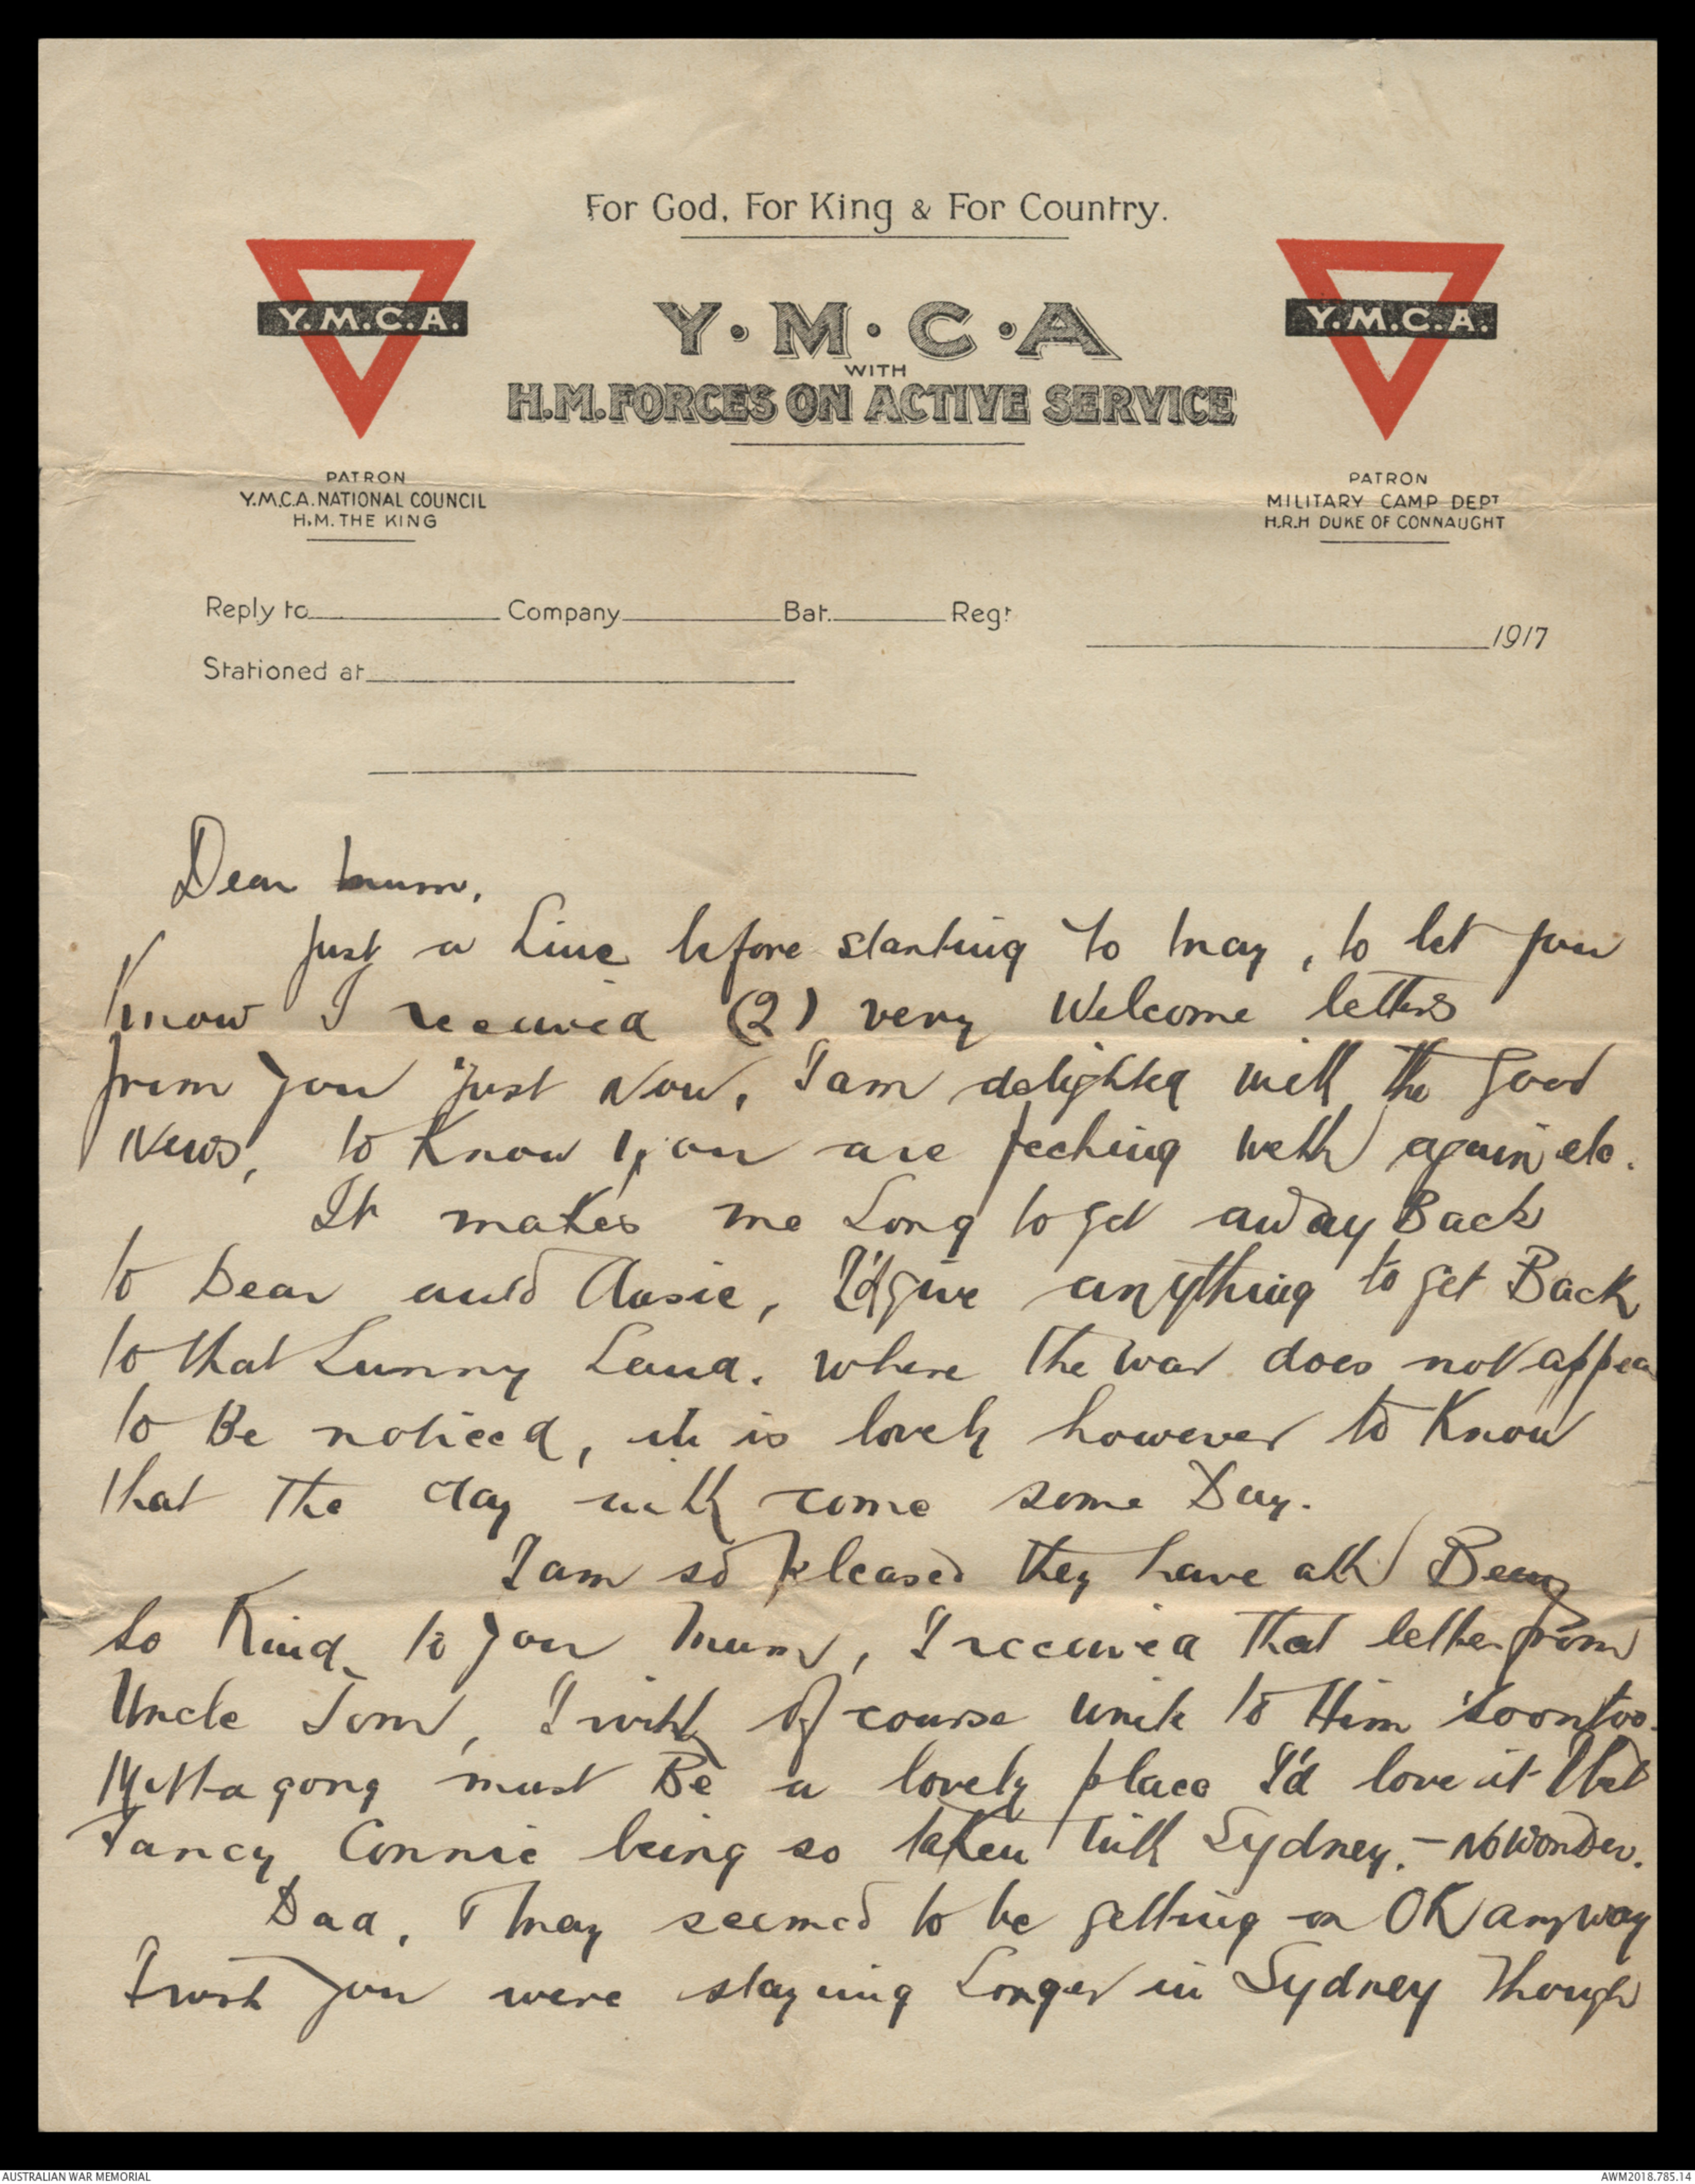 For God, For King & For Country.
Y.M.C.A.
Y.M.C.A
Y.M.C.A.
WITH
H.M. FORCES ON ACTIVE SERVICE
PATRON
Y.M.C.A. NATIONAL COUNCIL
H.M. THE KING
PATRON
MILITARY CAMP DEPT
H.R.H DUKE OF CONNAUGHT
Reply to Company Bat. Regt
1917
Stationed at
Dear Mum,
Just a Line before starting to May, to let you
Know I received (2) very Welcome letters
from you just Now, I am delighted with the good
News, to Know you are feeling well again etc.
It makes me Long to get away Back
to Dear auld Aussie, I'd give anything to get Back
to that Sunny Land. where the war does not appea
to Be noticed, it is lovely however to Know
that the day will come some Day.
I am so pleased they have all Been
so Kind to you Mum, I received that letter from
Uncle Tom, I will of course write to Him soon too.
Mittagong must Be a lovely place I'd love it I bet
Fancy Connie being so taken with Sydney. - No Wonder.
Dad, & May seemed to be getting on OK anyway
I wish you were staying Longer in Sydney Though
AUSTRALIAN WAR MEMORIAL
AWM2018.785.14